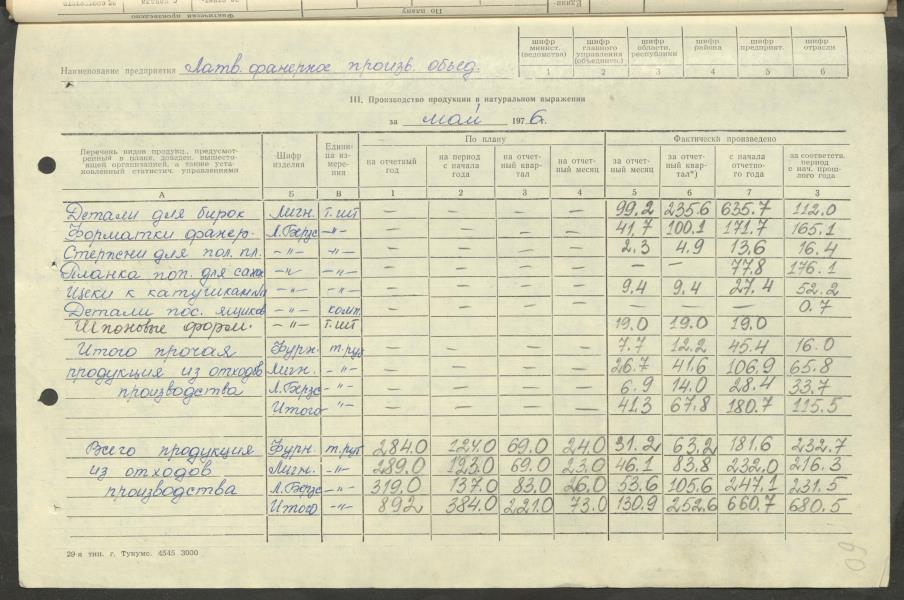 По плану
Фактически произведено
Наименование предприятия Латв. фанерное произв. объед.
шифр минист. (ведомства) | шифр главного управления (объединен.) | шифр области, республики | шифр района | шифр предприят. | шифр отрасли
1 2 3 4 5 6
III. Производство продукции в натуральном выражении
за май 1976 г.
Перечень видов продукц., предусмотренный в плане, доведен. вышестоящей организацией, а также установленный статистич. управлениями | Шифр изделия | Единица измерения | По плану | Фактически произведено
на отчетный год | на период с начала года | на отчетный квартал | на отчетный месяц | за отчетный месяц | за отчетный квартал*) | с начала отчетного года | за соответств. период с нач. прошлого года
А Б В 1 2 3 4 5 6 7 3
Детали для бирок Лигн. т. шт — — — — 99,2 235.6 635.7 112.0
Форматки фанер. Л.Берзс -"- — — — — 41,7 100,1 171.7 165.1
Стержни для пол. пл. -"- -"- — — — — 2.3 4.9 13,6 16.4
Планка поп. для -"- -"- — — — — — — 77.8 176.1
Щеки к катушкам -"- -"- — — — — 9.4 9.4 27.4 52.2
Детали пос. ящиков -"- комп. — — — — — — — 0.7
Шпоновые форм. -"- т. шт 19.0 19.0 19.0
Итого прочая Фурн. т. руб — — — — 7.7 12.2 45.4 16.0
продукция из отходов Лигн. -"- — — — — 26.7 41.6 106.9 65.8
производства Л.Берзс -"- — — — — 6.9 14.0 28.4 33.7
Итого -"- — — — — 41.3 67.8 180.7 115.5
Всего продукция Фурн. т. руб 284.0 124.0 69.0 24.0 31.2 63.2 181.6 232.7
из отходов Лигн. -"- 289.0 123.0 69.0 23.0 46.1 83.8 232.0 216.3
производства Л.Берзс -"- 319.0 137.0 83.0 26.0 53.6 105.6 247.1 231.5
Итого -"- 892 384.0 221.0 73.0 130.9 252.6 660.7 680.5
29-я тип. г. Тукумс. 4545 3000
60